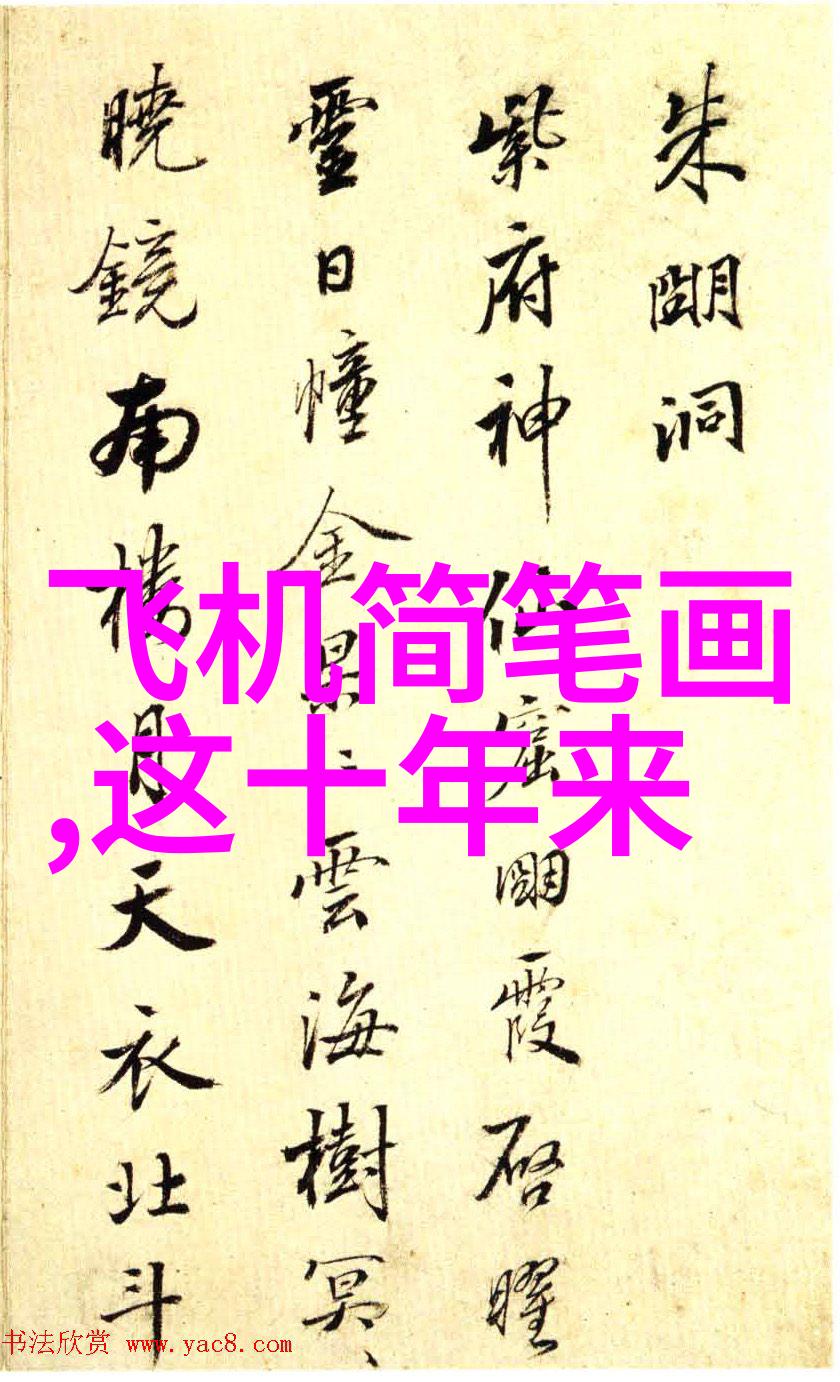 朱朙洞
紫府神仙窟朙霞启曜
靈日幢金杲〻雲海樹冥〻
曉鏡南樓月天衣北斗
飞机简笔画
,这十年来
书法欣赏 www.yac8.com